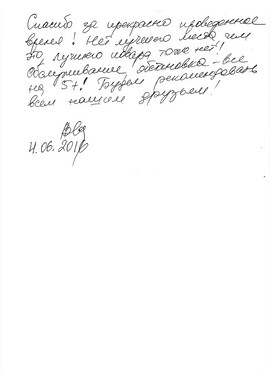 Спасибо за прекрасно проведенное
время! Нет лучшего места чем
это, лучшего повара тоже нет!
Обслуживание, обстановка – все
на 5+! Будем рекомендовать
всем нашим друзьям!
4.06.2016